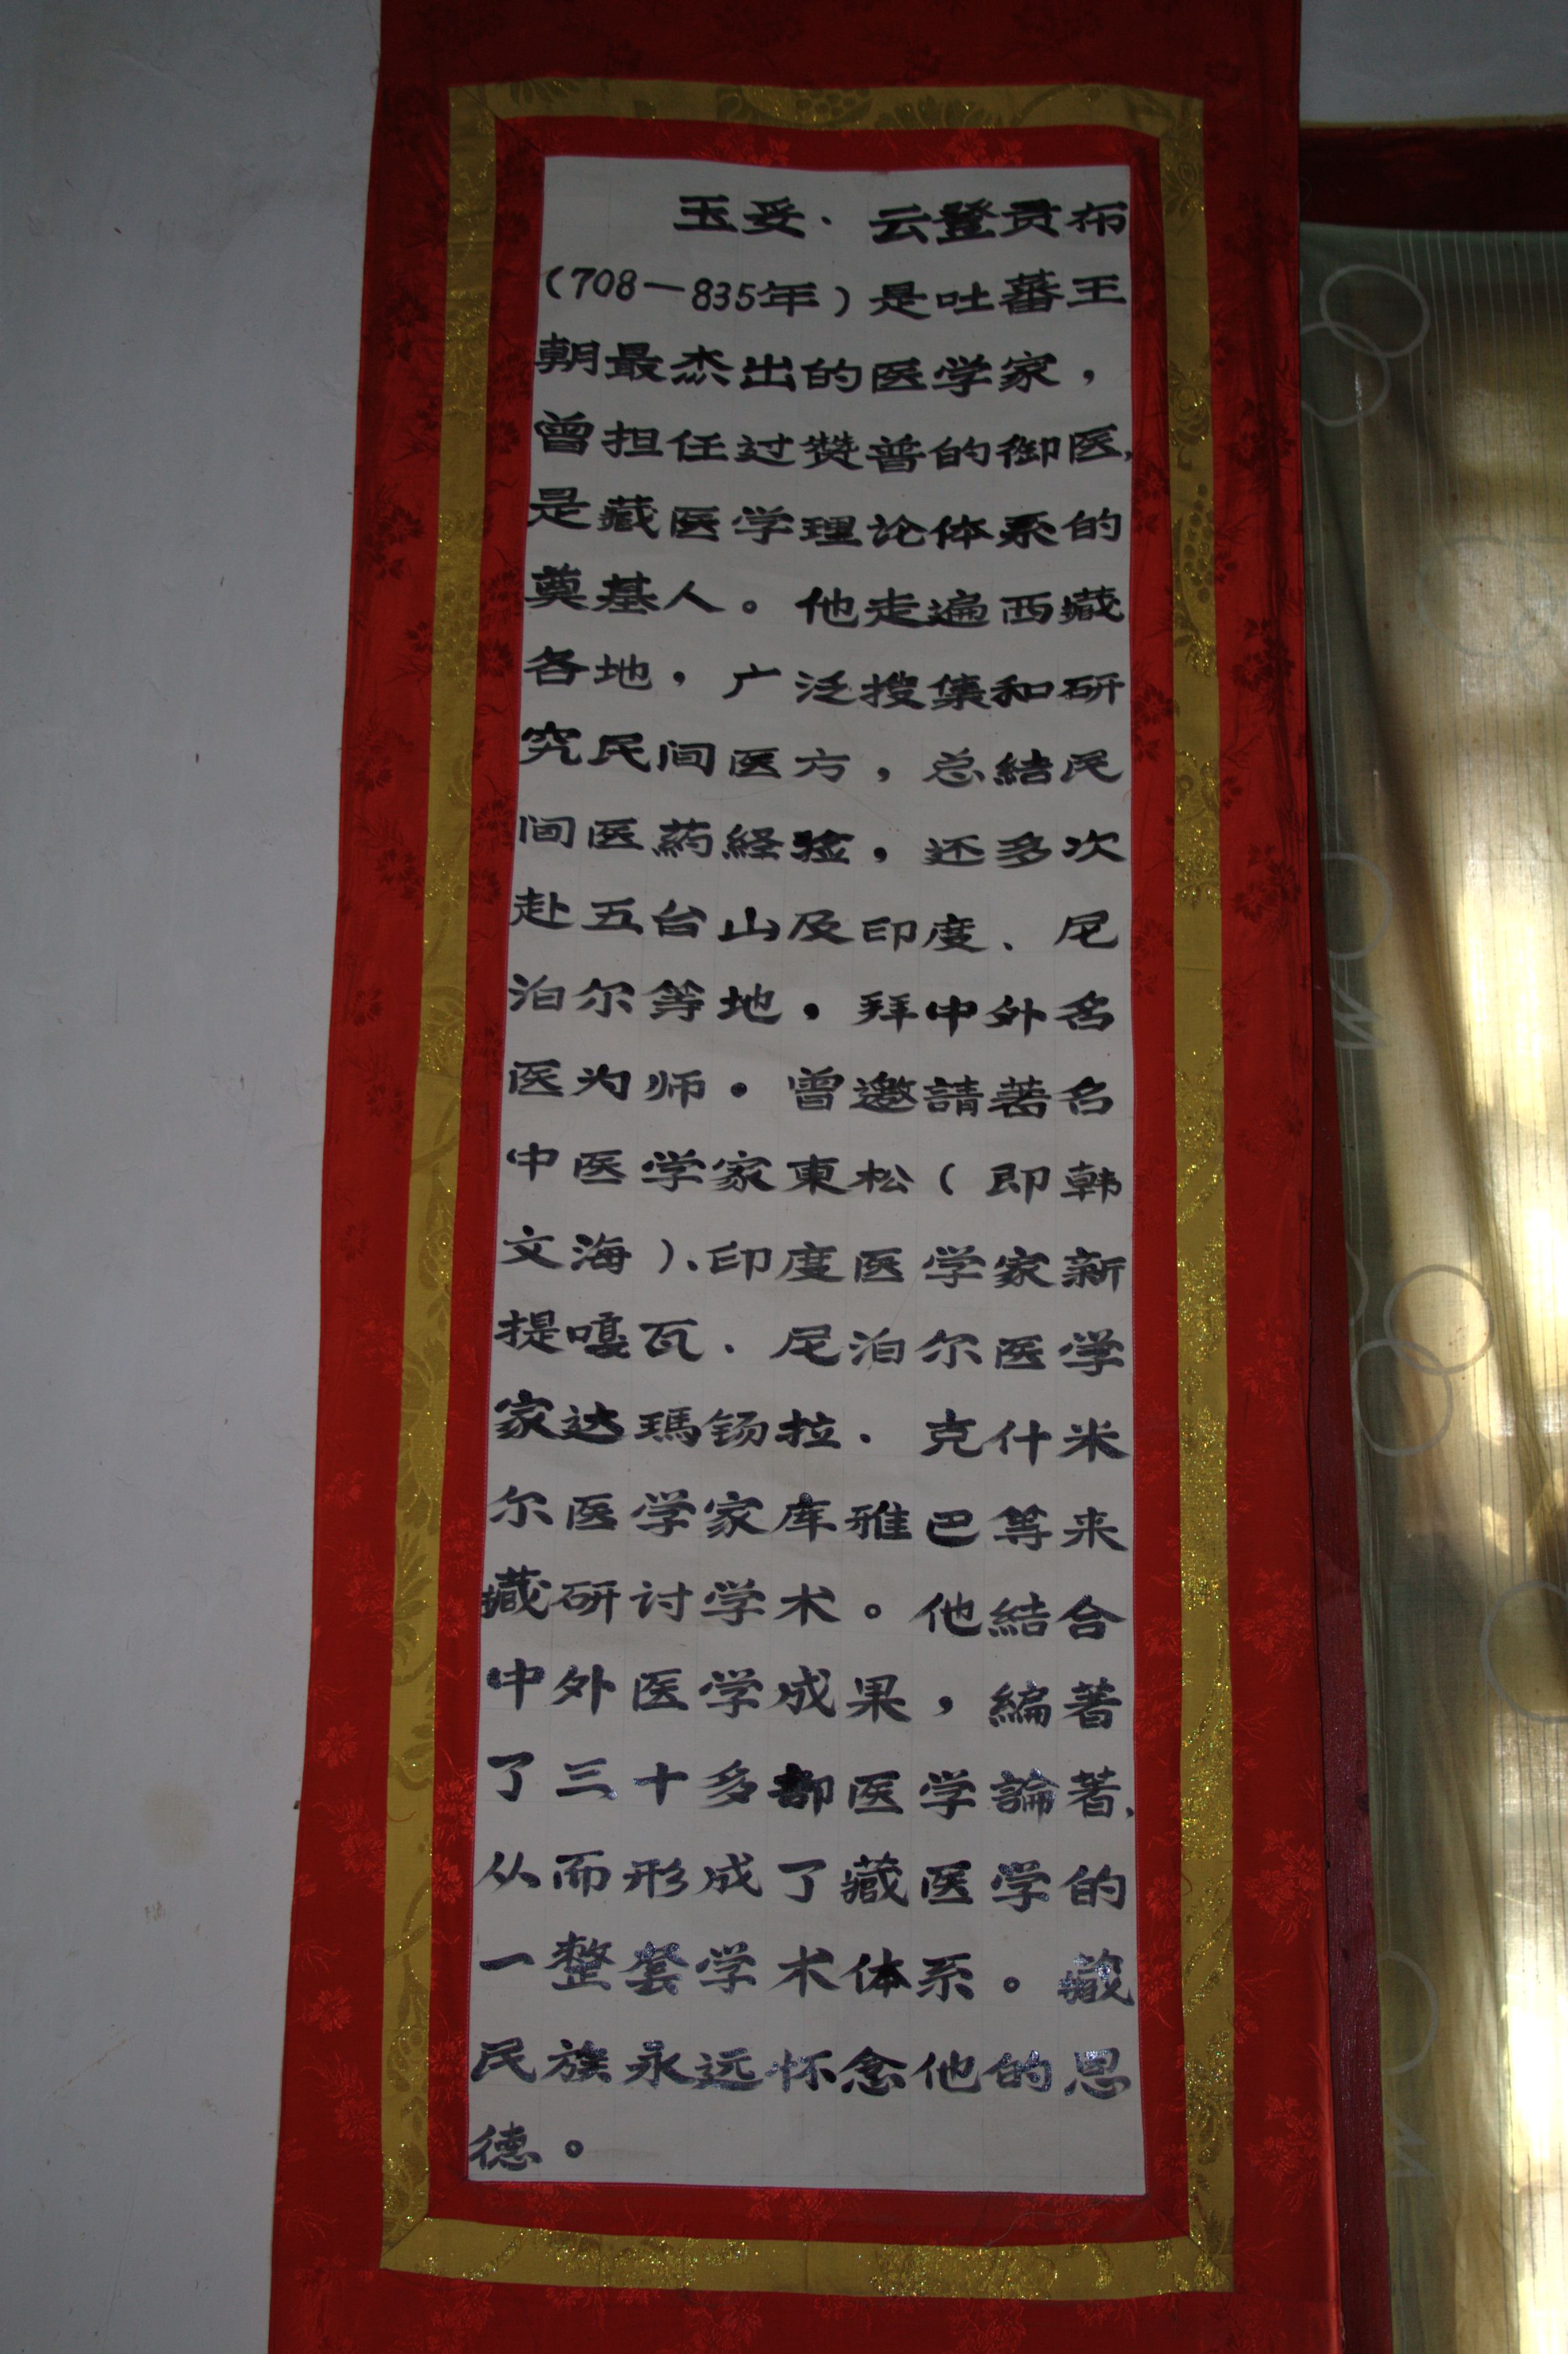 玉妥·云登贡布
(708—835年)是吐蕃王
朝最杰出的医学家,
曾担任过赞普的御医,
是藏医学理论体系的
奠基人。他走遍西藏
各地,广泛搜集和研
究民间医方,总結民
间医药経验,还多次
赴五台山及印度、尼
泊尔等地·拜中外名
医为师·曾邀請著名
中医学家東松(即韩
文海)、印度医学家新
提嘎瓦、尼泊尔医学
家达瑪钖拉、克什米
尔医学家库雅巴等来
藏研讨学术。他結合
中外医学成果,編著
了三十多部医学論著,
从而形成了藏医学的
一整套学术体系。藏
民族永远怀念他的恩
德。